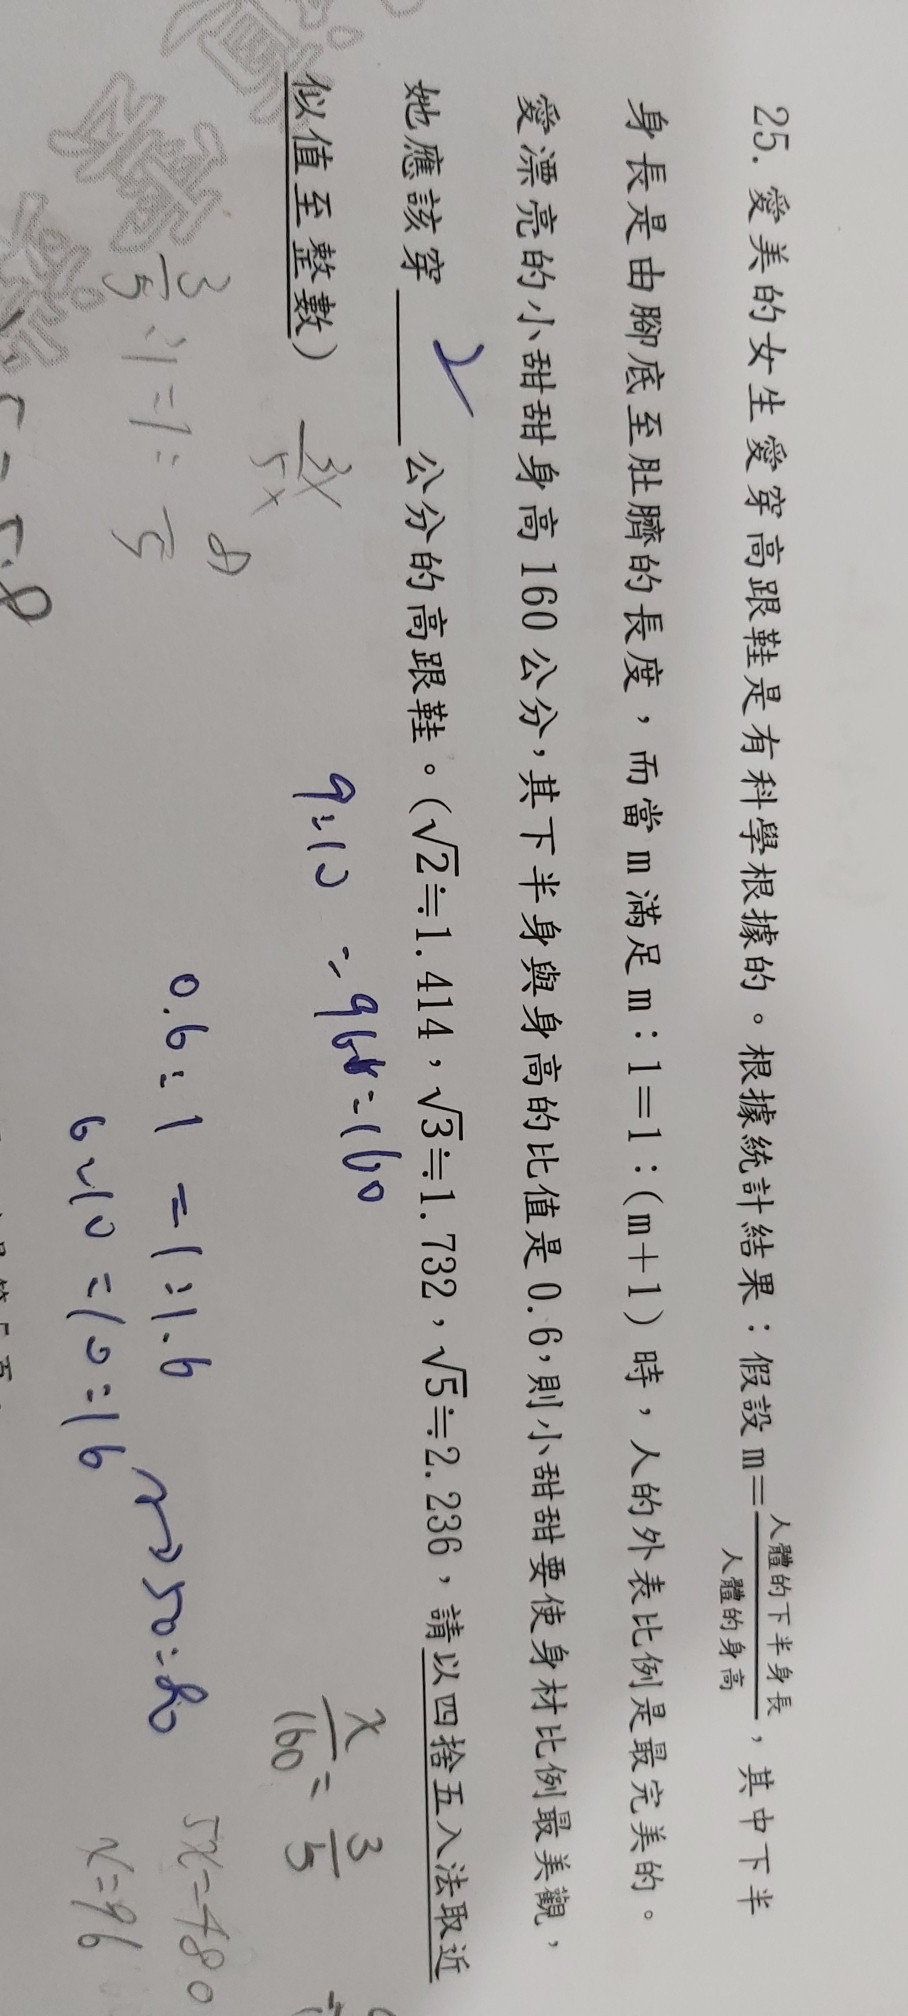 25. 愛美的女生愛穿高跟鞋是有科學根據的。根據統計結果：假設m=人體的下半身長/人體的身高，其中下半
身長是由腳底至肚臍的長度，而當m滿足m：1=1：(m+1)時，人的外表比例是最完美的。
愛漂亮的小甜甜身高160公分，其下半身與身高的比值是0.6，則小甜甜要使身材比例最美觀，
她應該穿______公分的高跟鞋。(√2≒1.414，√3≒1.732，√5≒2.236，請以四捨五入法取近
似值至整數)
3x/5x
9:10 = 96:160
x/160 = 3/5
3/5 : 1 = 1 :
8/5
0.6:1 = 1:1.6
50:80
5x=480
6:10 = 10:16
x=96